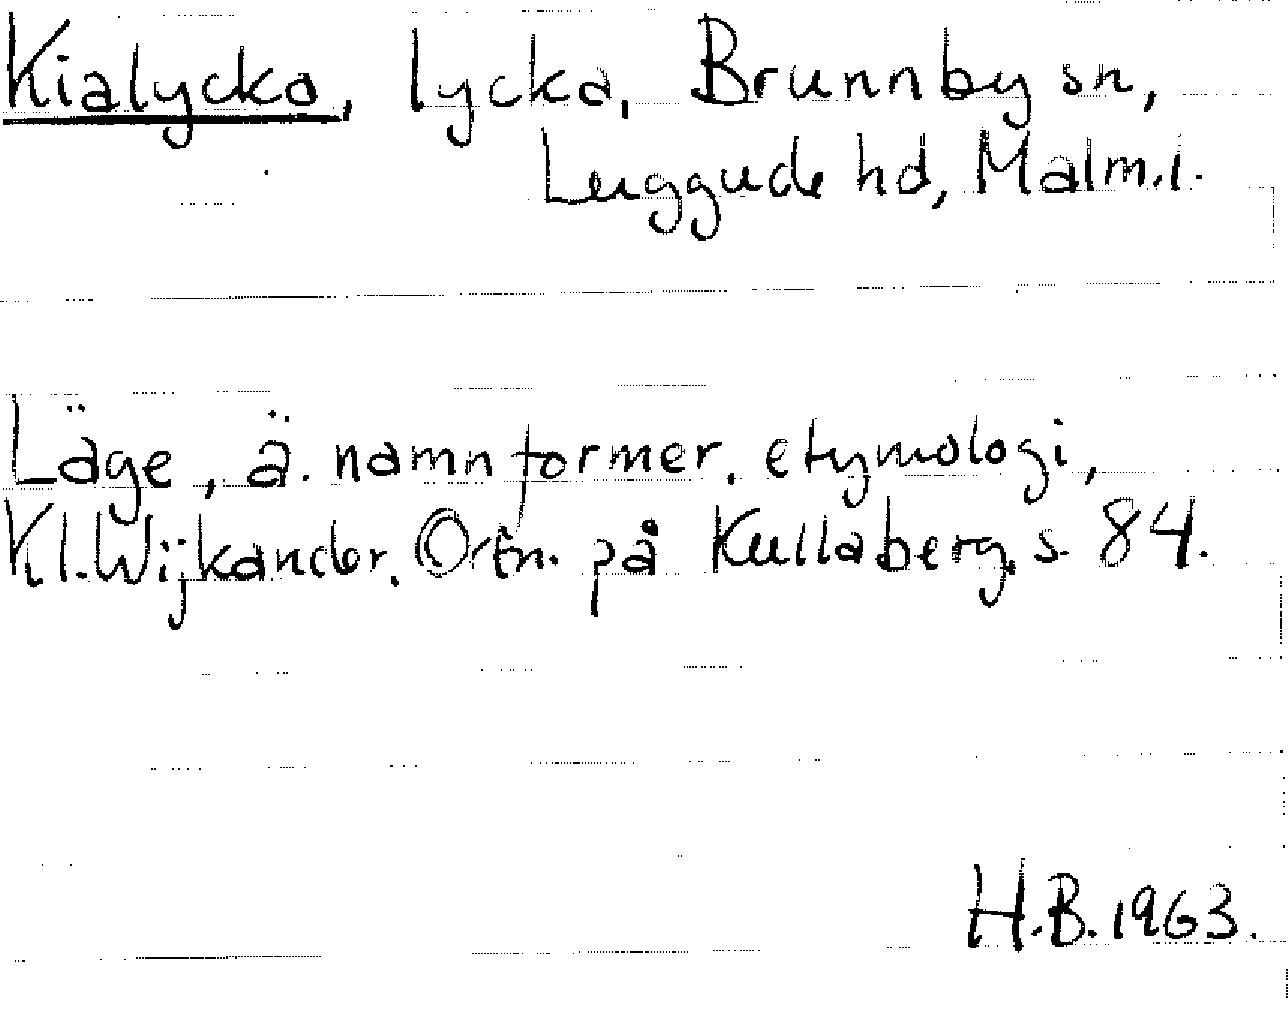 Kialycka, lycka, Brunnby sn,
Luggude hd, Malm.l.
Läge, ä. namnformer, etymologi,
Kl. Wijkander, Ortn. på Kullaberg, s. 84.
H.B. 1963.